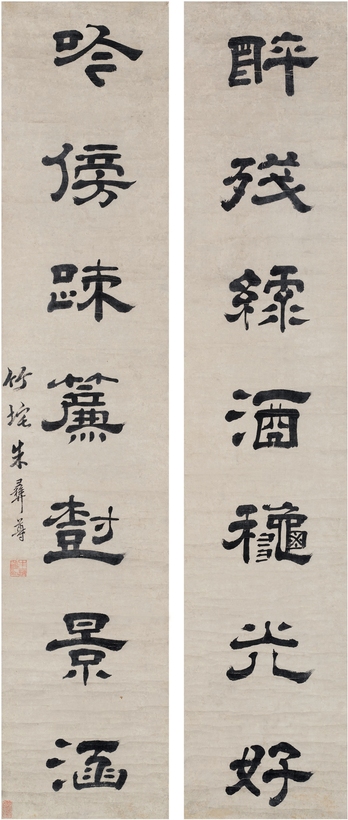 醉殘綠酒龝光好
吟傍疎簾樹景涵
竹垞朱彝尊